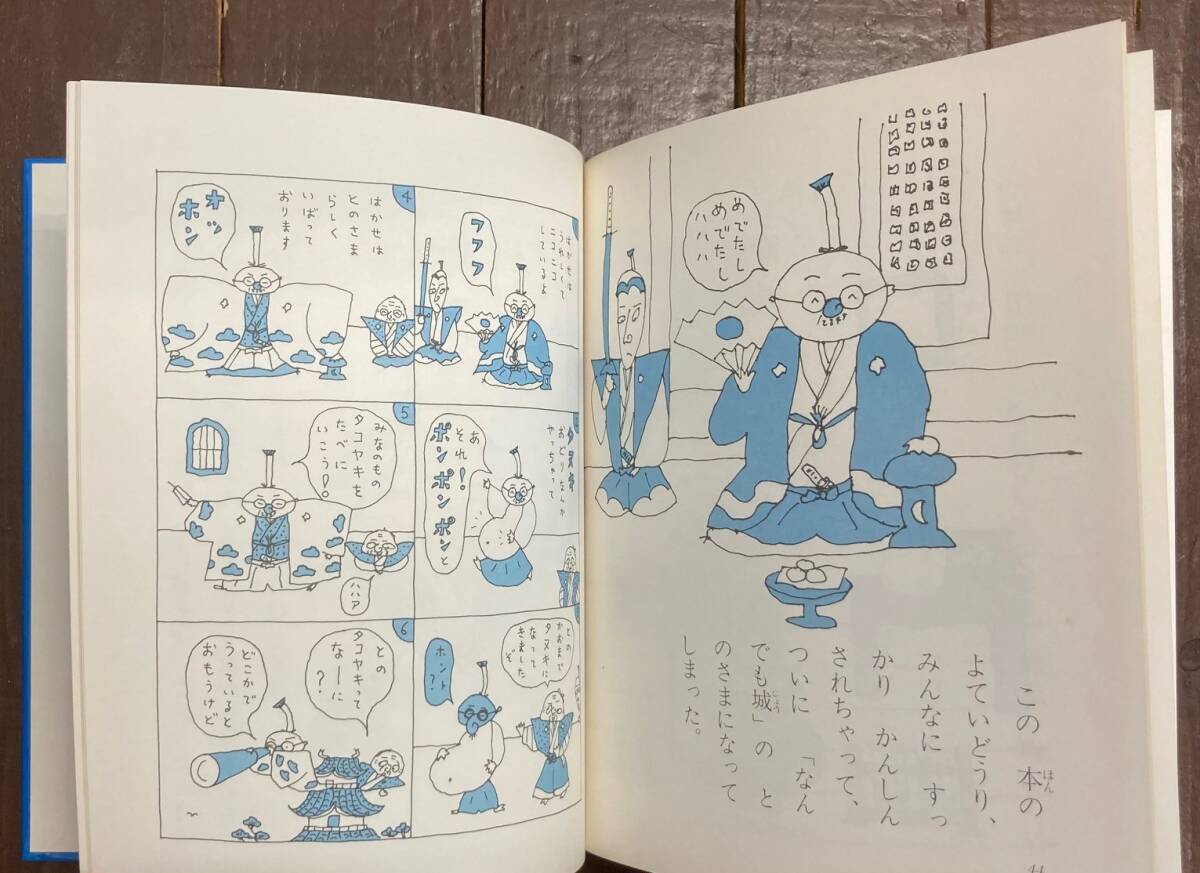 めでたし
めでたし
ハハハ
この 本の
ほん
よていどうり、
みんなに すっ
かり かんしん
されちゃって、
ついに 「なん
でも城」の と
じょう
のさまになって
しまった。
44
はかせは
うれしくて
ニコニコ
しているよ
フフフ
タヌキ
おどりなんか
やっちゃって
あ
それ!!
ポンポンポンと
との
かおまで
タヌキに
なって
きました
ぞ
ホント
?
4
はかせは
とのさま
らしく
いばって
おります
オッ
ホン
5
みなのもの
タコヤキを
たべに
いこう!
ハハア
6
との
タコヤキって
なーに
?
どこかで
うっていると
おもうけど